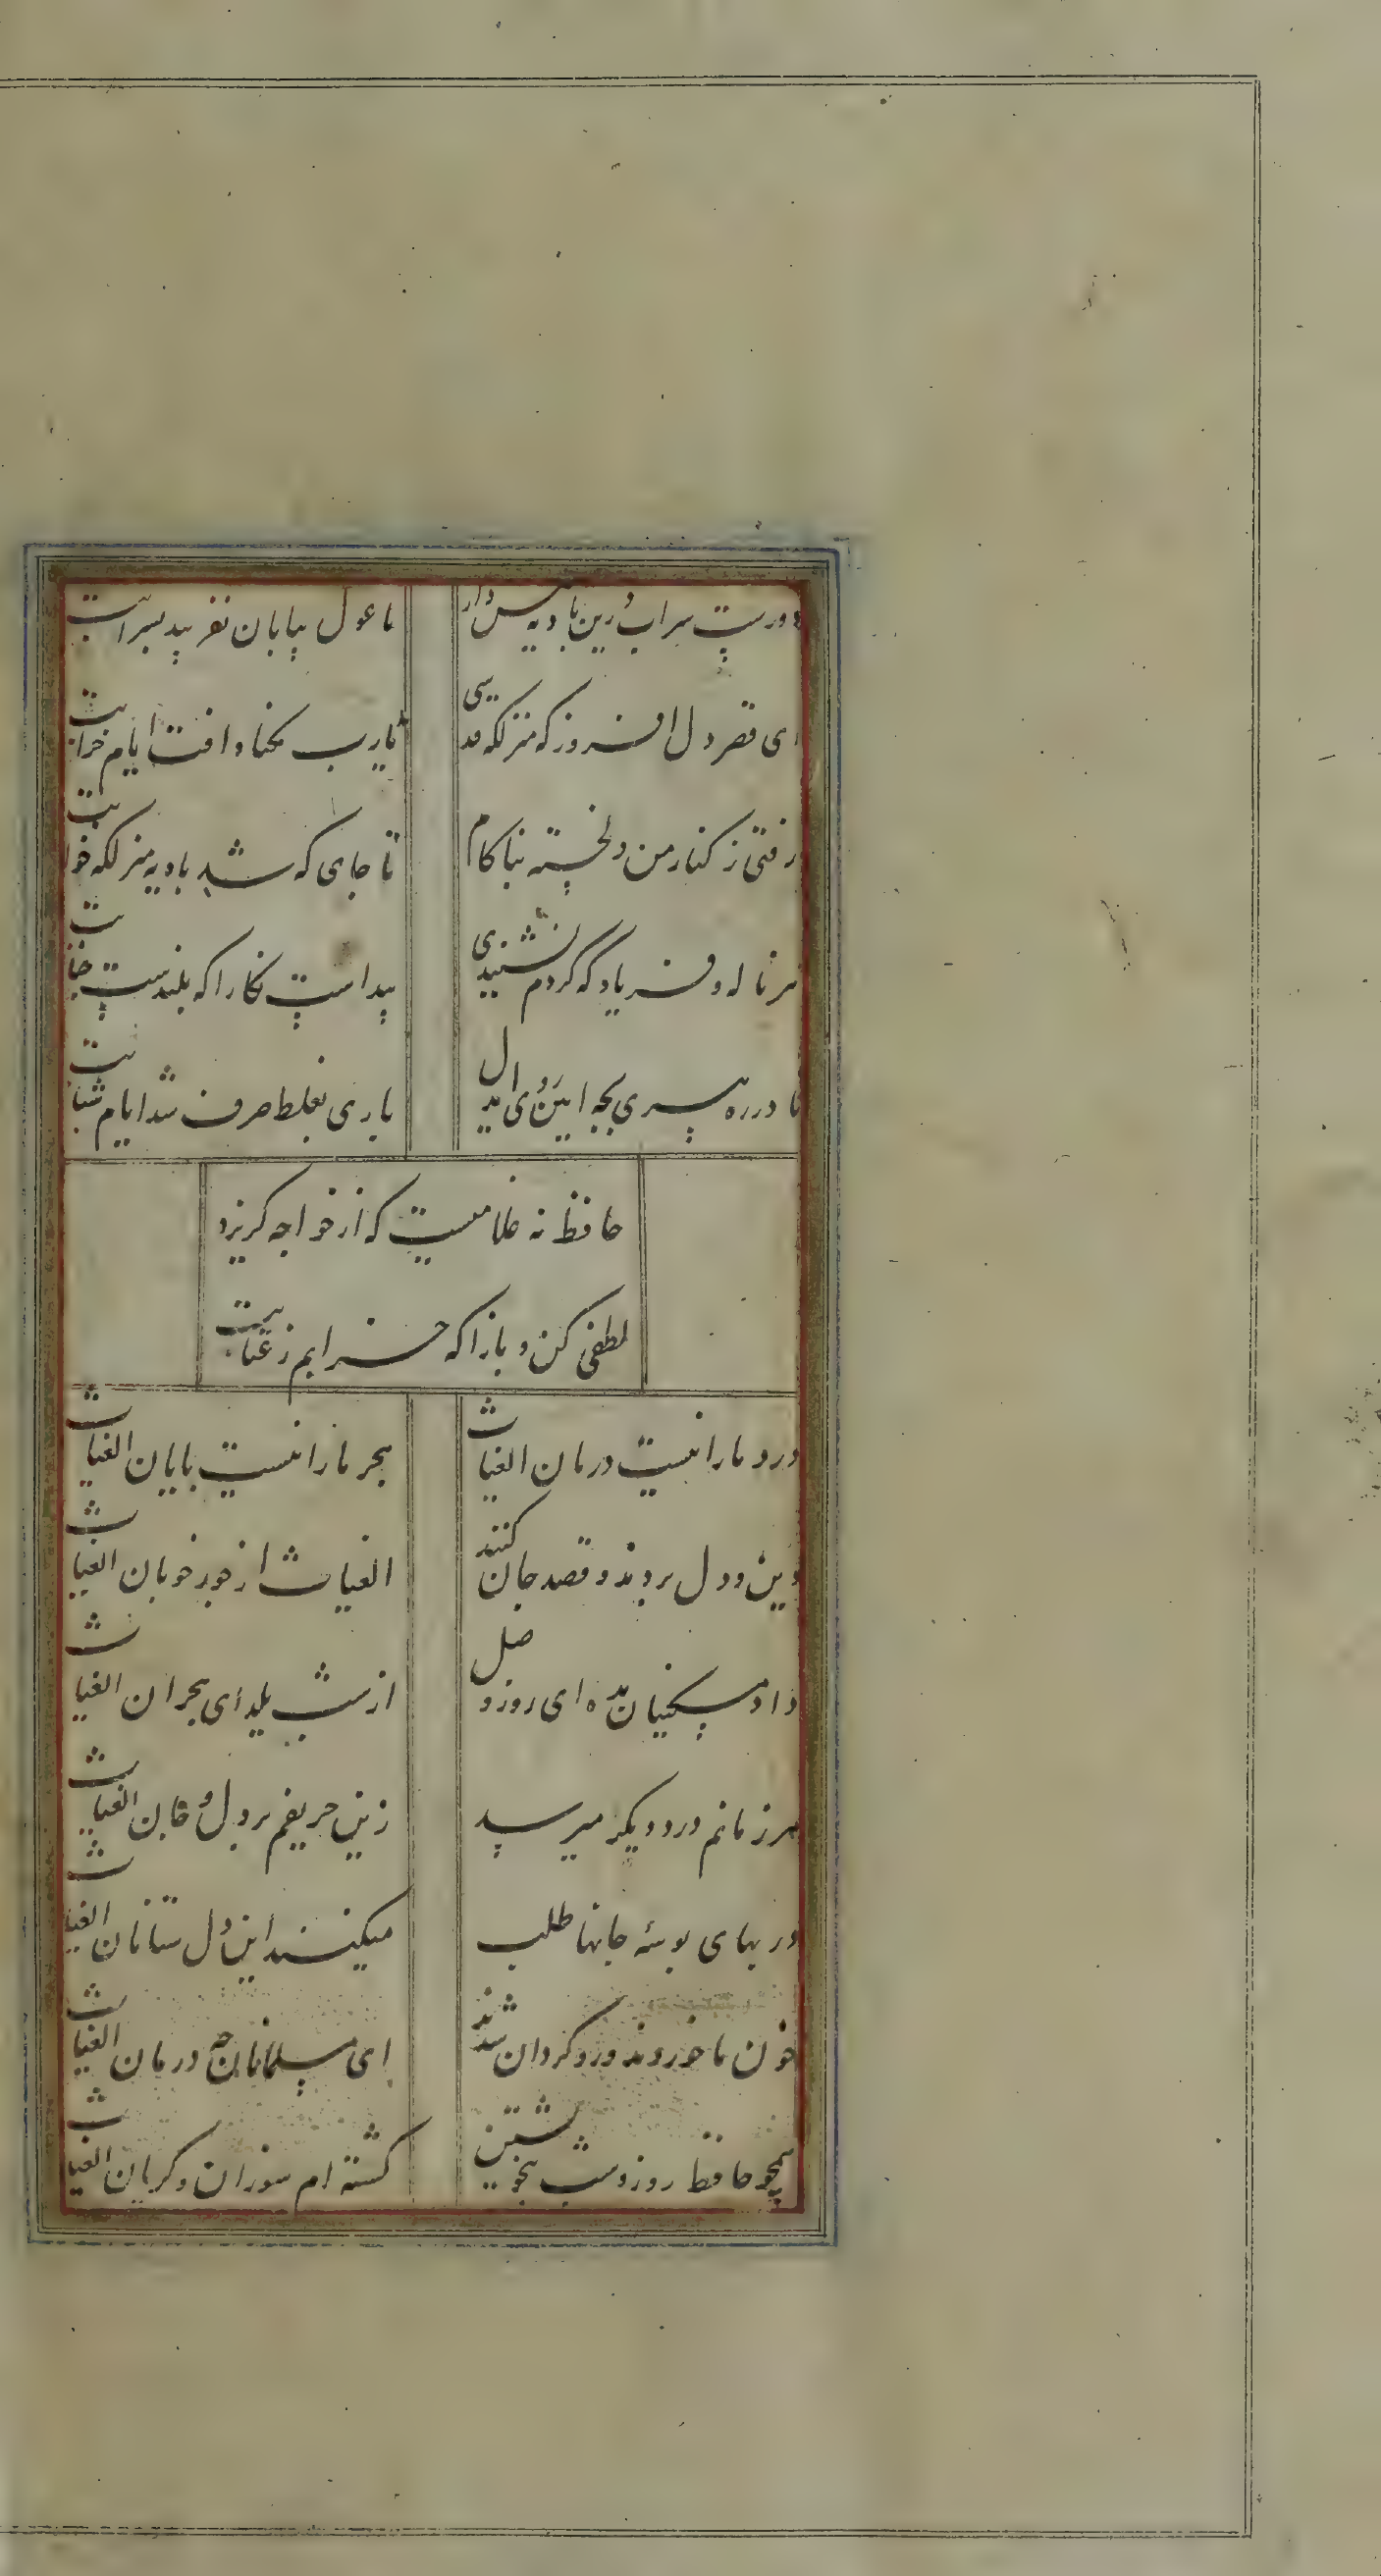 دورست سراب درین بادیه هش دار
تا غول بیابان نفریبد بسرابت
ای قصر دل افروز که منزلگه قدسی
یارب مکناد افت ایام خرابت
رفتی ز کنار من دلخسته بناکام
تا جای که شد بادیه منزلگه خوابت
هر ناله و فریاد که کردم نشنیدی
پیداست نکارا که بلندست جنابت
تا در ره پیری بچه ایین روی ای دل
باری بغلط صرف شد ایام شبابت
حافظ نه غلامیست که از خواجه گریزد
لطفی کن و بازا که خرابم ز عتابت
درد ما را نیست درمان الغیاث
هجر ما را نیست پایان الغیاث
دین و دل بردند و قصد جان کنند
الغیاث از جور خوبان الغیاث
داد مسکینان بده ای روز وصل
از شب یلدای هجران الغیاث
هر زمانم درد دیگر میرسد
زین حریفم بر دل و جان الغیاث
در بهای بوسهٔ جانها طلب
میکنند این دل ستانان الغیاث
خون ما خوردند و رو گردان شدند
ای مسلمانان چه درمان الغیاث
همچو حافظ روز و شب بی خویشتن
گشته ام سوزان و گریان الغیاث